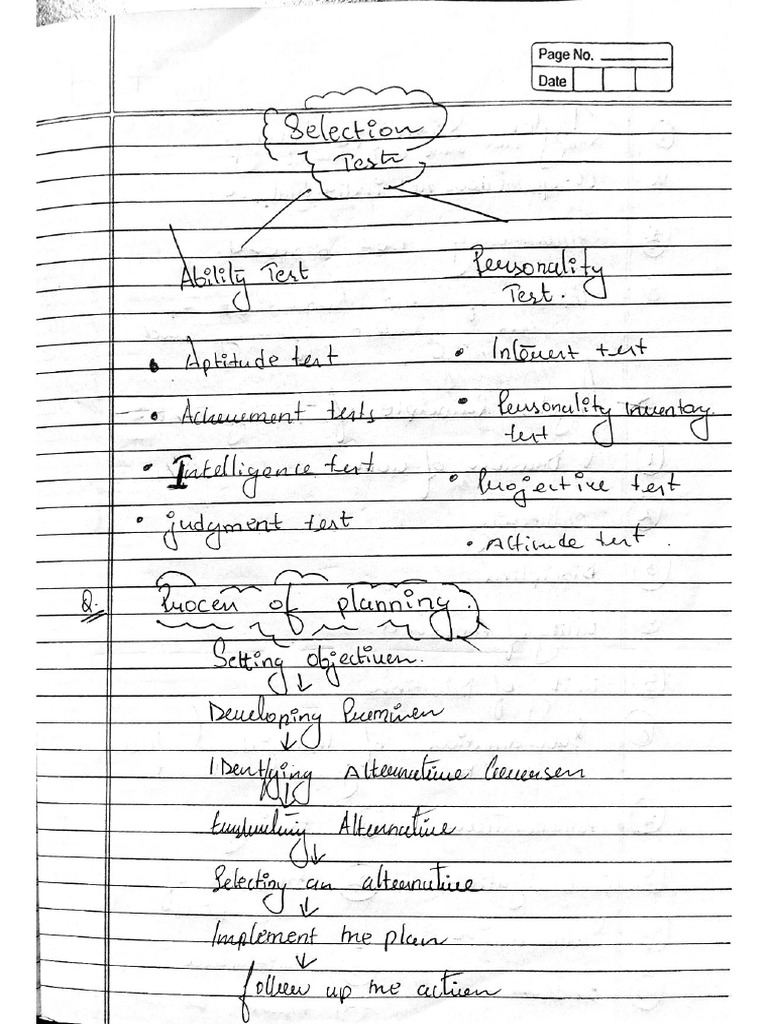 Page No.
Date
Selection
Test
Ability Test
Personality
Test.
• Aptitude test
• Interest test
• Achievement tests
• Personality inventory
test
• Intelligence test
• Projective test
• judgment test
• Attitude test.
Q. Process of planning.
Setting objectives.
↓
Developing Premises
↓
IDentfying Alternative Courses
↓
Evaluating Alternative
↓
Selecting an alternative
↓
Implement the plan
↓
follow up the action